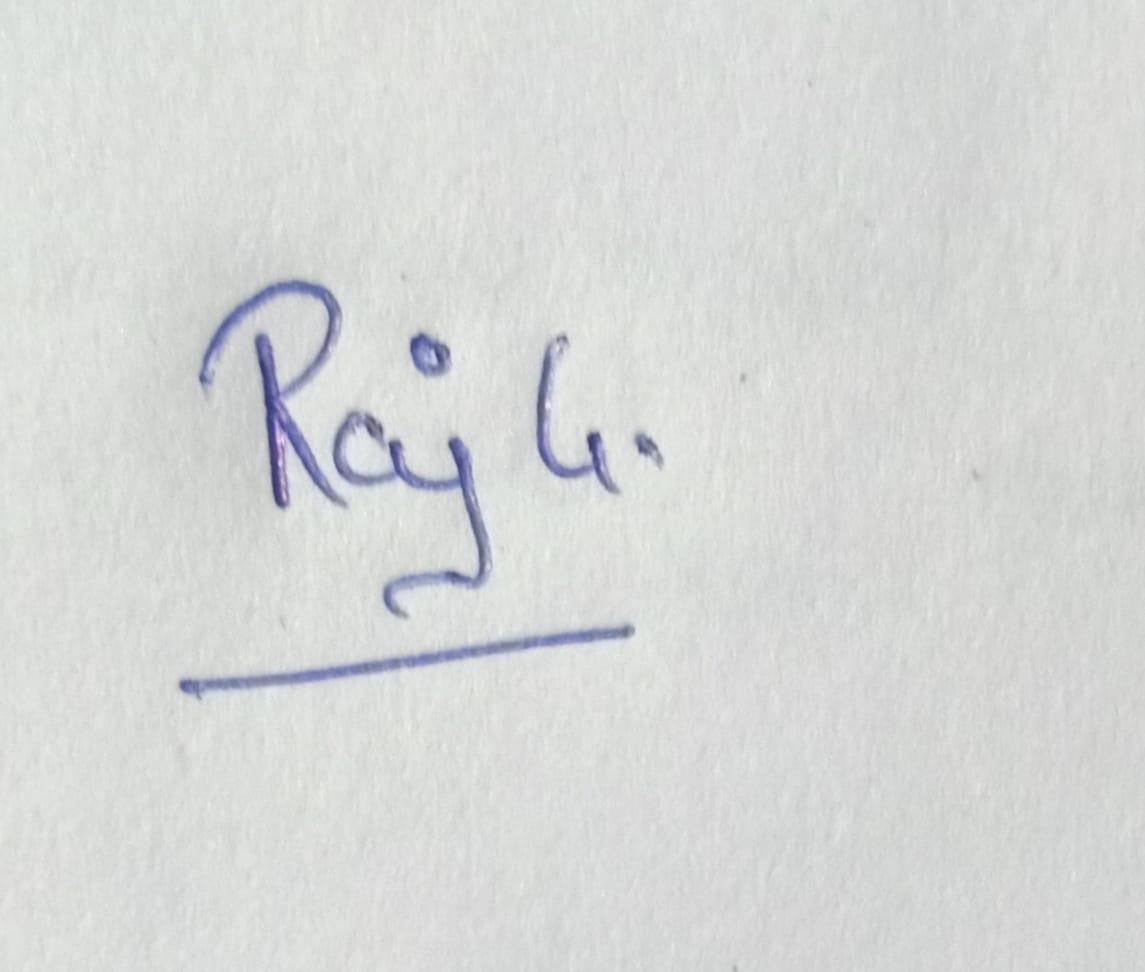 Raj G.